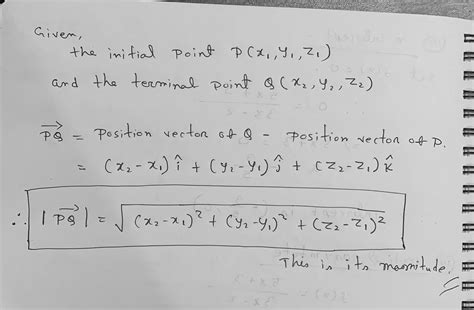 Given,
the initial point P(x₁, y₁, z₁)
and the terminal point Q(x₂, y₂, z₂)
→PQ = Position vector of Q - position vector of P.
= (x₂-x₁) î + (y₂-y₁) ĵ + (z₂-z₁) k̂
∴ |→PQ| = √((x₂-x₁)² + (y₂-y₁)² + (z₂-z₁)²)
This is its magnitude.